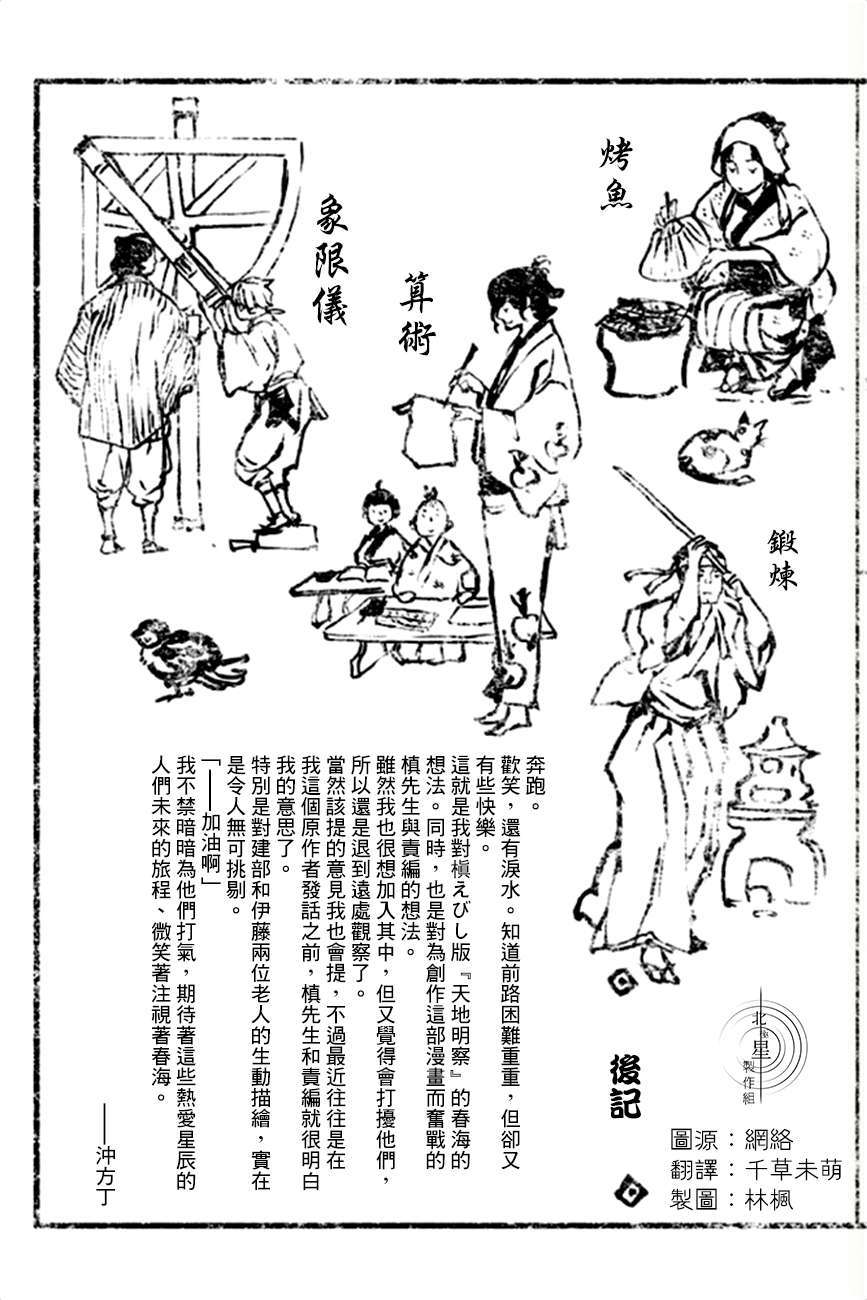 烤魚
象限儀
算術
鍛煉
後記
奔跑。
歡笑，還有淚水。知道前路困難重重，但卻又
有些快樂。
這就是我對槇えびし版『天地明察』的春海的
想法。同時，也是對為創作這部漫畫而奮戰的
槙先生與責編的想法。
雖然我也很想加入其中，但又覺得會打擾他們，
所以還是退到遠處觀察了。
當然該提的意見我也會提，不過最近往往是在
我這個原作者發話之前，槙先生和責編就很明白
我的意思了。
特別是對建部和伊藤兩位老人的生動描繪，實在
是令人無可挑剔。
「——加油啊」
我不禁暗暗為他們打氣，期待著這些熱愛星辰的
人們未來的旅程、微笑著注視著春海。
——沖方丁
北極星
製作組
圖源：網絡
翻譯：千草未萌
製圖：林楓